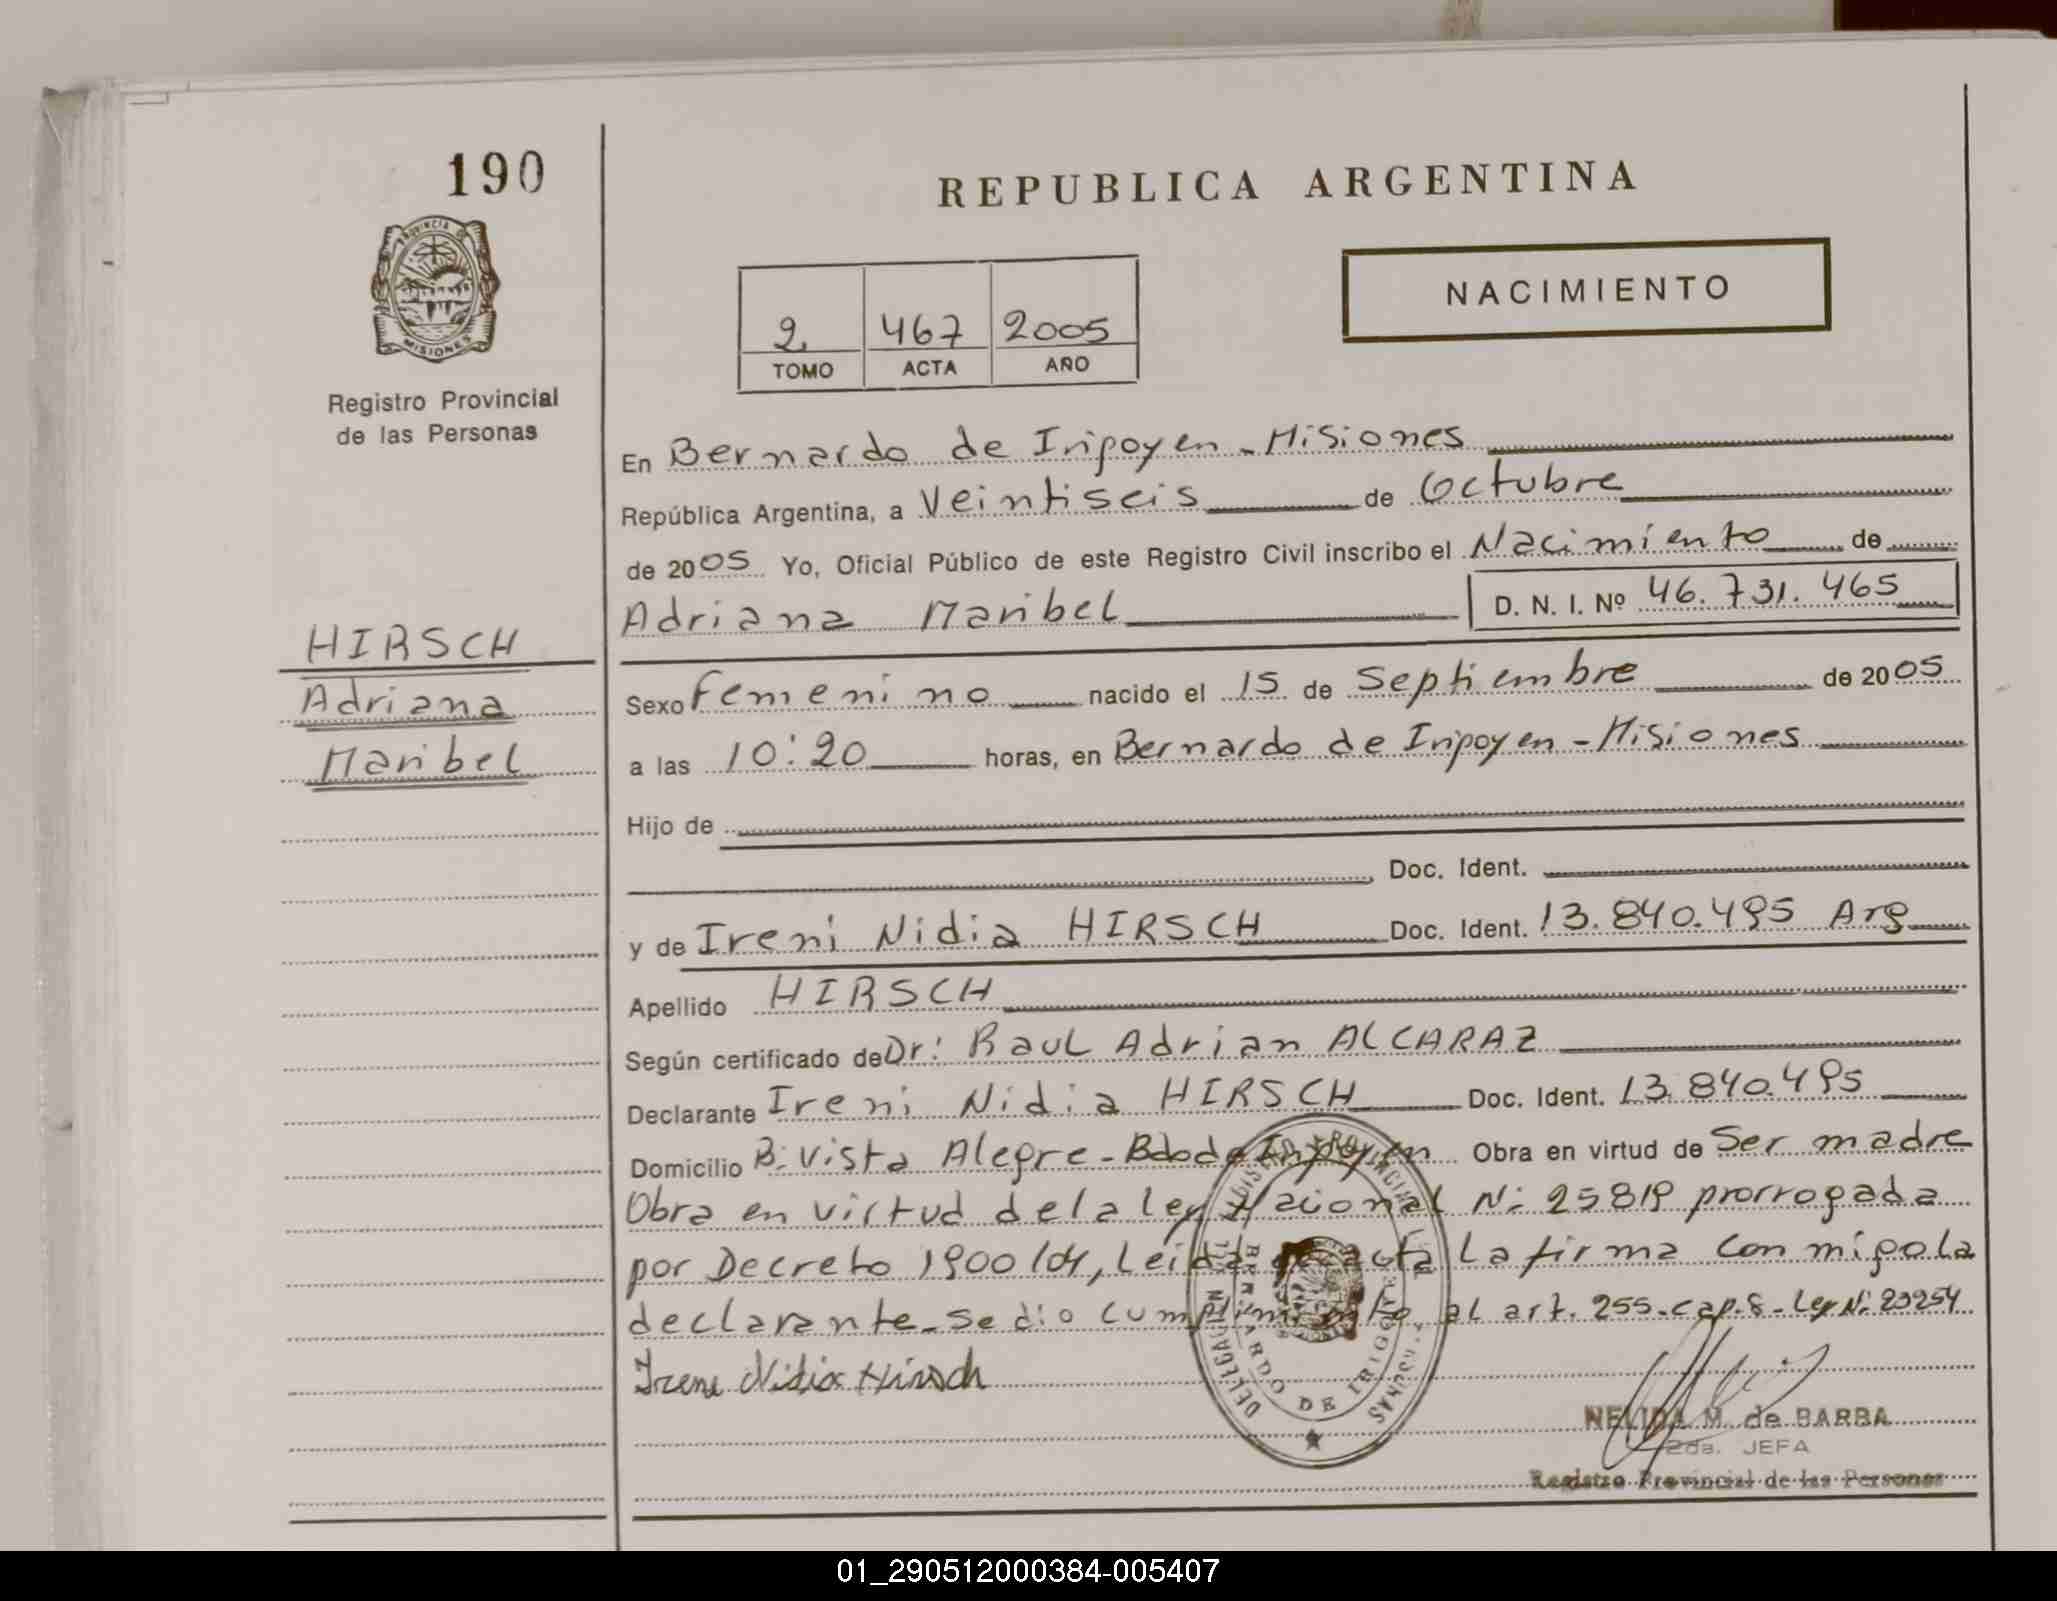 190
REPUBLICA ARGENTINA
PROVINCIA DE
MISIONES
NACIMIENTO
2 467 2005
TOMO ACTA AÑO
Registro Provincial
de las Personas
En Bernardo de Iripoyen - Misiones
República Argentina, a Veintiseis de Octubre
de 2005 Yo, Oficial Público de este Registro Civil inscribo el Nacimiento de
Adriana Maribel D. N. I. Nº 46.731.465
HIRSCH
Adriana
Maribel
Sexo Femenino nacido el 15 de Septiembre de 2005
a las 10:20 horas, en Bernardo de Iripoyen - Misiones
Hijo de
Doc. Ident.
y de Ireni Nidia HIRSCH Doc. Ident. 13.840.495 Arg
Apellido HIRSCH
Según certificado de Dr: Raul Adrian ALCARAZ
Declarante Ireni Nidia HIRSCH Doc. Ident. 13.840.495
Domicilio B: Vista Alegre - Bdo de Iripoyen Obra en virtud de Ser madre
Obra en virtud de la ley Nacional N: 25819 prorrogada
por Decreto 1900/04, Leida el acta La firma con migo la
declarante - se dio cumplimiento al art. 255 - cap. 8 - Ley N: 20254
Irene Nidia Hirsch
DELEGACION BERNARDO DE IRIGOYEN
NELIDA M. de BARBA
2da. JEFA
Registro Provincial de las Personas
01_290512000384-005407